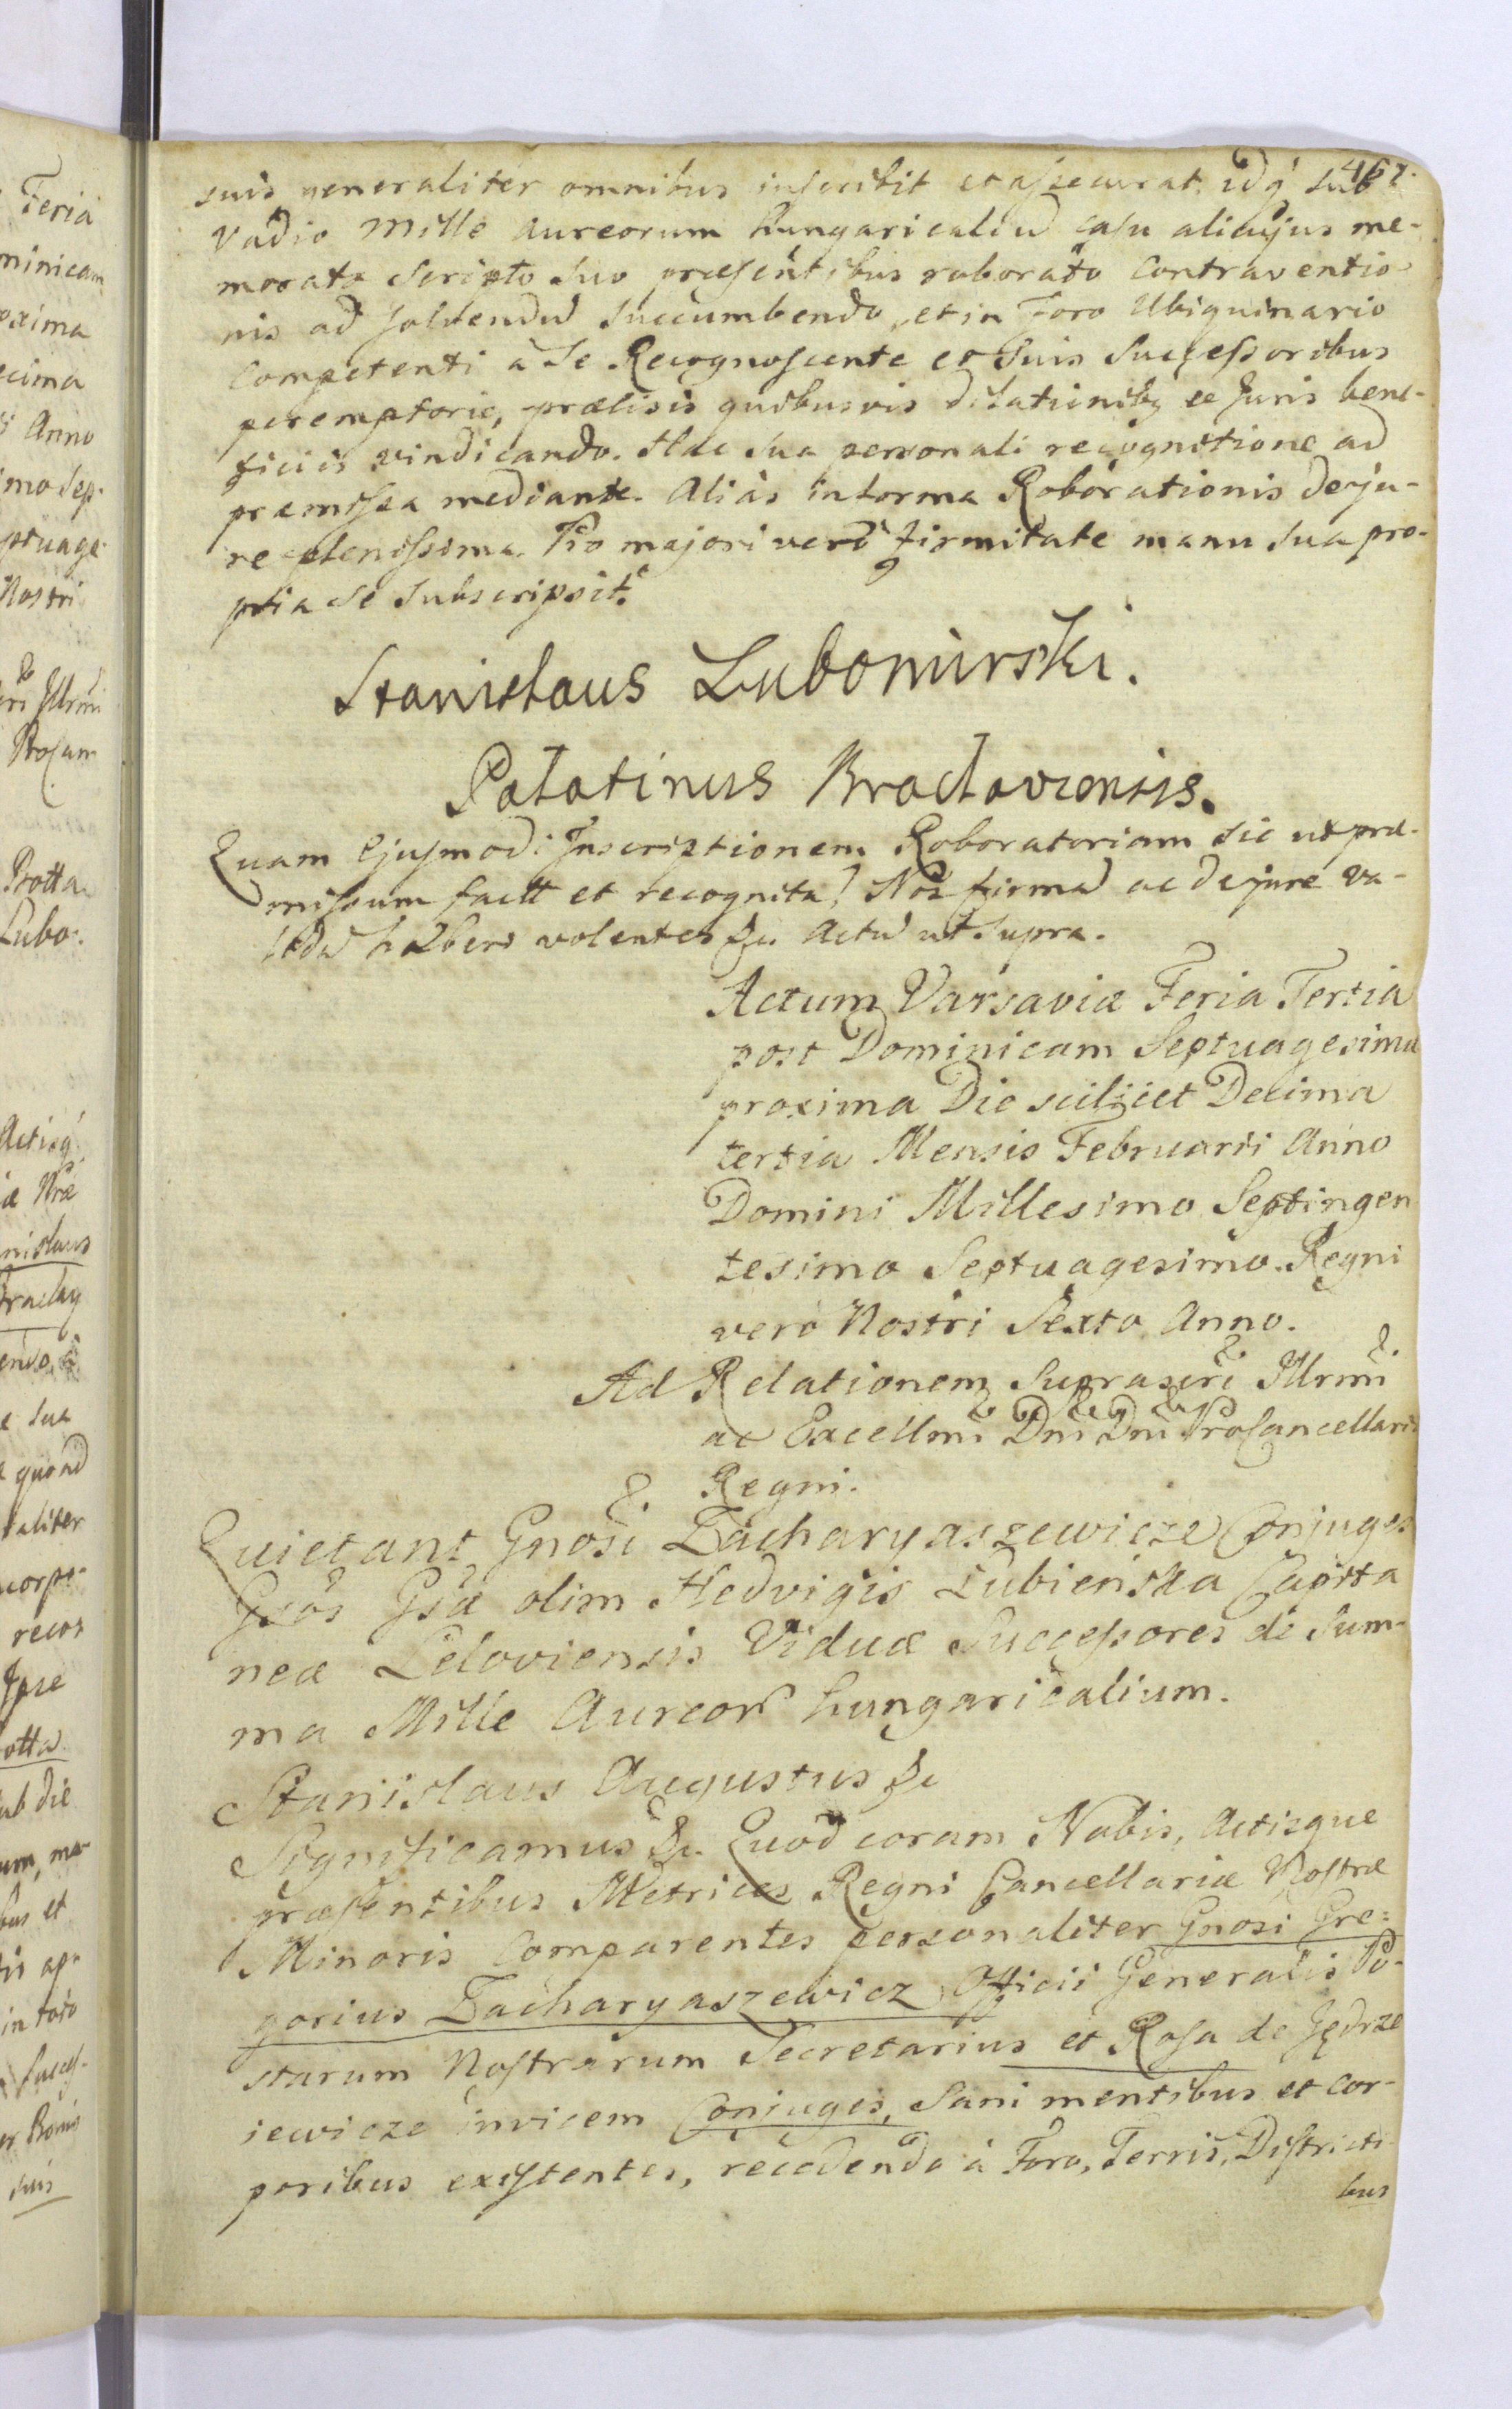 467.
suis generaliter omnibus inscribit et assecurat, idq́ sub
Vadio Mille Aureorum hungaricaliu casu alicujus me-
morato Scripto suo præsentibus roborato Contraventio
nis ad solvendu succumbendo, et in Foro Ubiquinario
Competenti a Se Recognoscente et suis Successoribus
peremptorie, præcisis quibusvis dilationibq ac Juris bene-
ficiis vindicando. Hac sua personali recognitione ad
præmissa mediante. Aliàs in forma Roborationis de ju-
re plenissima. Pro majori verò firmitate manu sua pro-
pria se subscripsit.
Stanislaus Lubomirski.
Palatinus Braclaviensis.
Quam Ejusmodi Inscriptionem Roboratoriam sic ut præ-
missum factt et recognita, Nos firma ac de jure va-
lida habere volentes &c. Actu ut supra.
Actum Varsaviæ Feria Tertia
post Dominicam Septuagesima
proxima Die scilicet Decima
tertia Mensis Februarii Anno
Domini Millesimo Septingen
tesimo Septuagesimo. Regni
verò Nostri Sexto Anno.
Ad Relationem Suprascri Illrmi
ac Excellmi Dni Dni ProCancellarii
Regni.
Quietant Gnosi Zacharyaszewicze Conjuges
Gsos Gsæ olim Hedvigis Łubieńska Capitta
neæ Leloviensis Viduæ Successores de Sum-
ma Mille Aureor hungaricalium.
Stanislaus Augustus &c
Significamus &c. Quod coram Nobis, Actisque
præsentibus Metrices Regni Cancellariæ Nostræ
Minoris Comparentes personaliter Gnosi Gre=
gorius Zacharyaszewicz Officii Generalis Po-
starum Nostrarum Secretarius et Rosa de Jędrze
iewicze invicem Conjuges, Sani mentibus et cor-
poribus existentes, recedendo à Foro, Terris, Districti-
bus